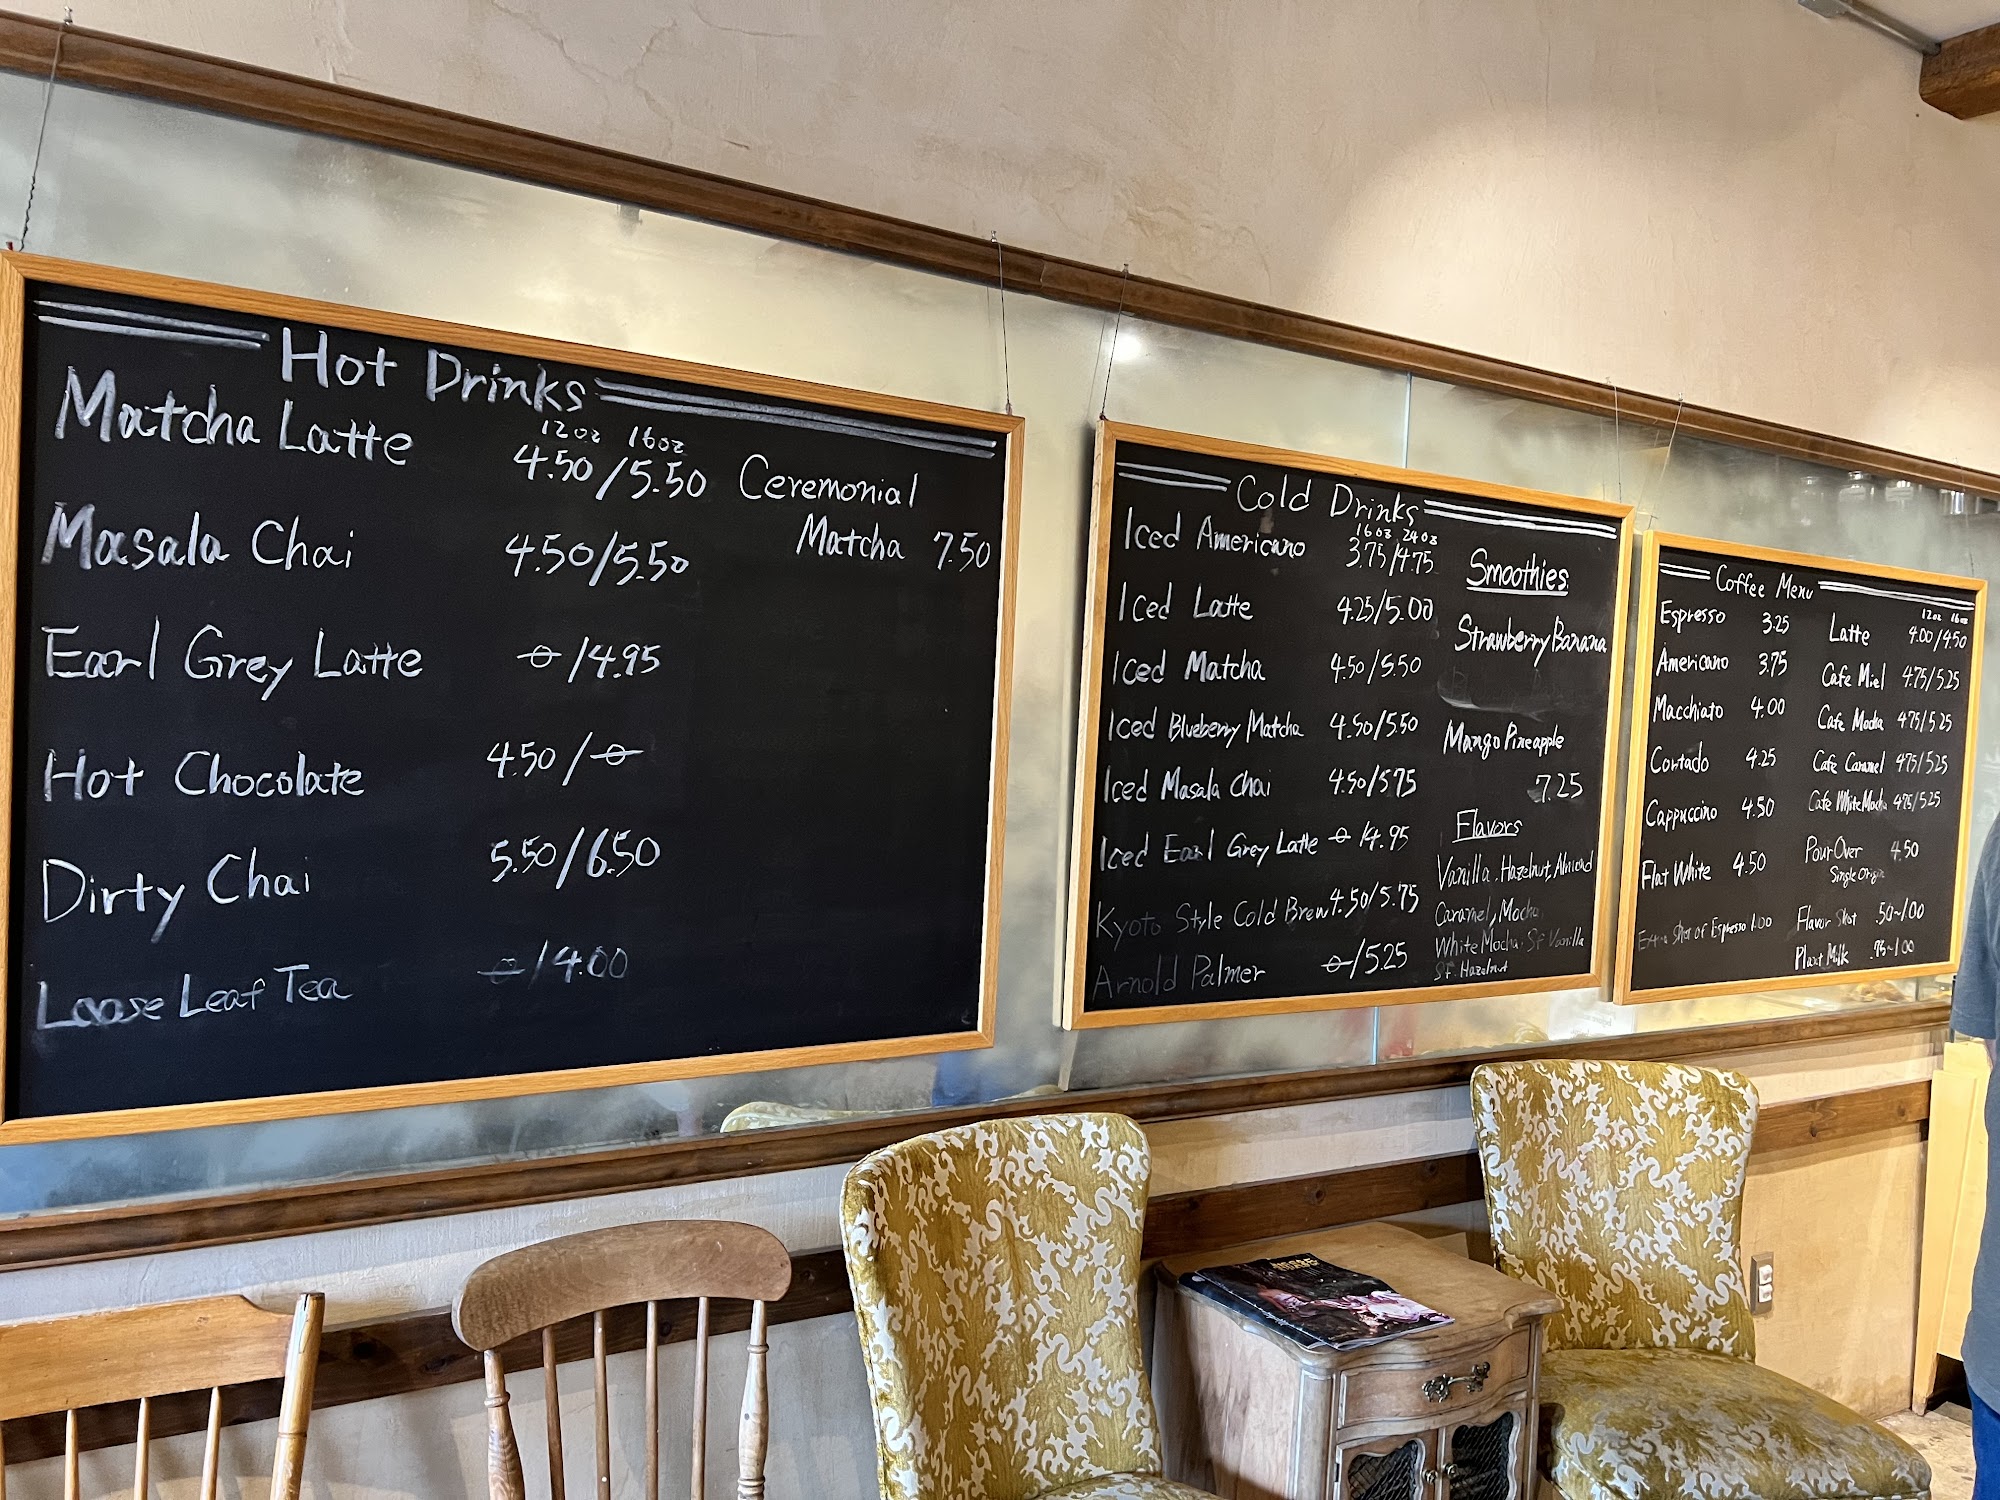 Hot Drinks
12oz 16oz
Matcha Latte 4.50/5.50
Masala Chai 4.50/5.50
Earl Grey Latte /4.95
Hot Chocolate 4.50/
Dirty Chai 5.50/6.50
Loose Leaf Tea /4.00
Ceremonial
Matcha 7.50
Cold Drinks
16oz 24oz
Iced Americano 3.75/4.75
Iced Latte 4.25/5.00
Iced Matcha 4.50/5.50
Iced Blueberry Matcha 4.50/5.50
Iced Masala Chai 4.50/5.75
Iced Earl Grey Latte /4.95
Kyoto Style Cold Brew 4.50/5.75
Arnold Palmer /5.25
Smoothies
Strawberry Banana
Mango Pineapple
7.25
Flavors
Vanilla, Hazelnut, Almond
Caramel, Mocha
White Mocha, Sf Vanilla
Sf. Hazelnut
Coffee Menu
Espresso 3.25
Americano 3.75
Macchiato 4.00
Cortado 4.25
Cappuccino 4.50
Flat White 4.50
Extra Shot of Espresso 1.00
12oz 16oz
Latte 4.00/4.50
Cafe Miel 4.75/5.25
Cafe Mocha 4.75/5.25
Cafe Caramel 4.75/5.25
Cafe White Mocha 4.75/5.25
Pour Over 4.50
Single Origin
Flavor Shot .50~1.00
Plant Milk .75~1.00